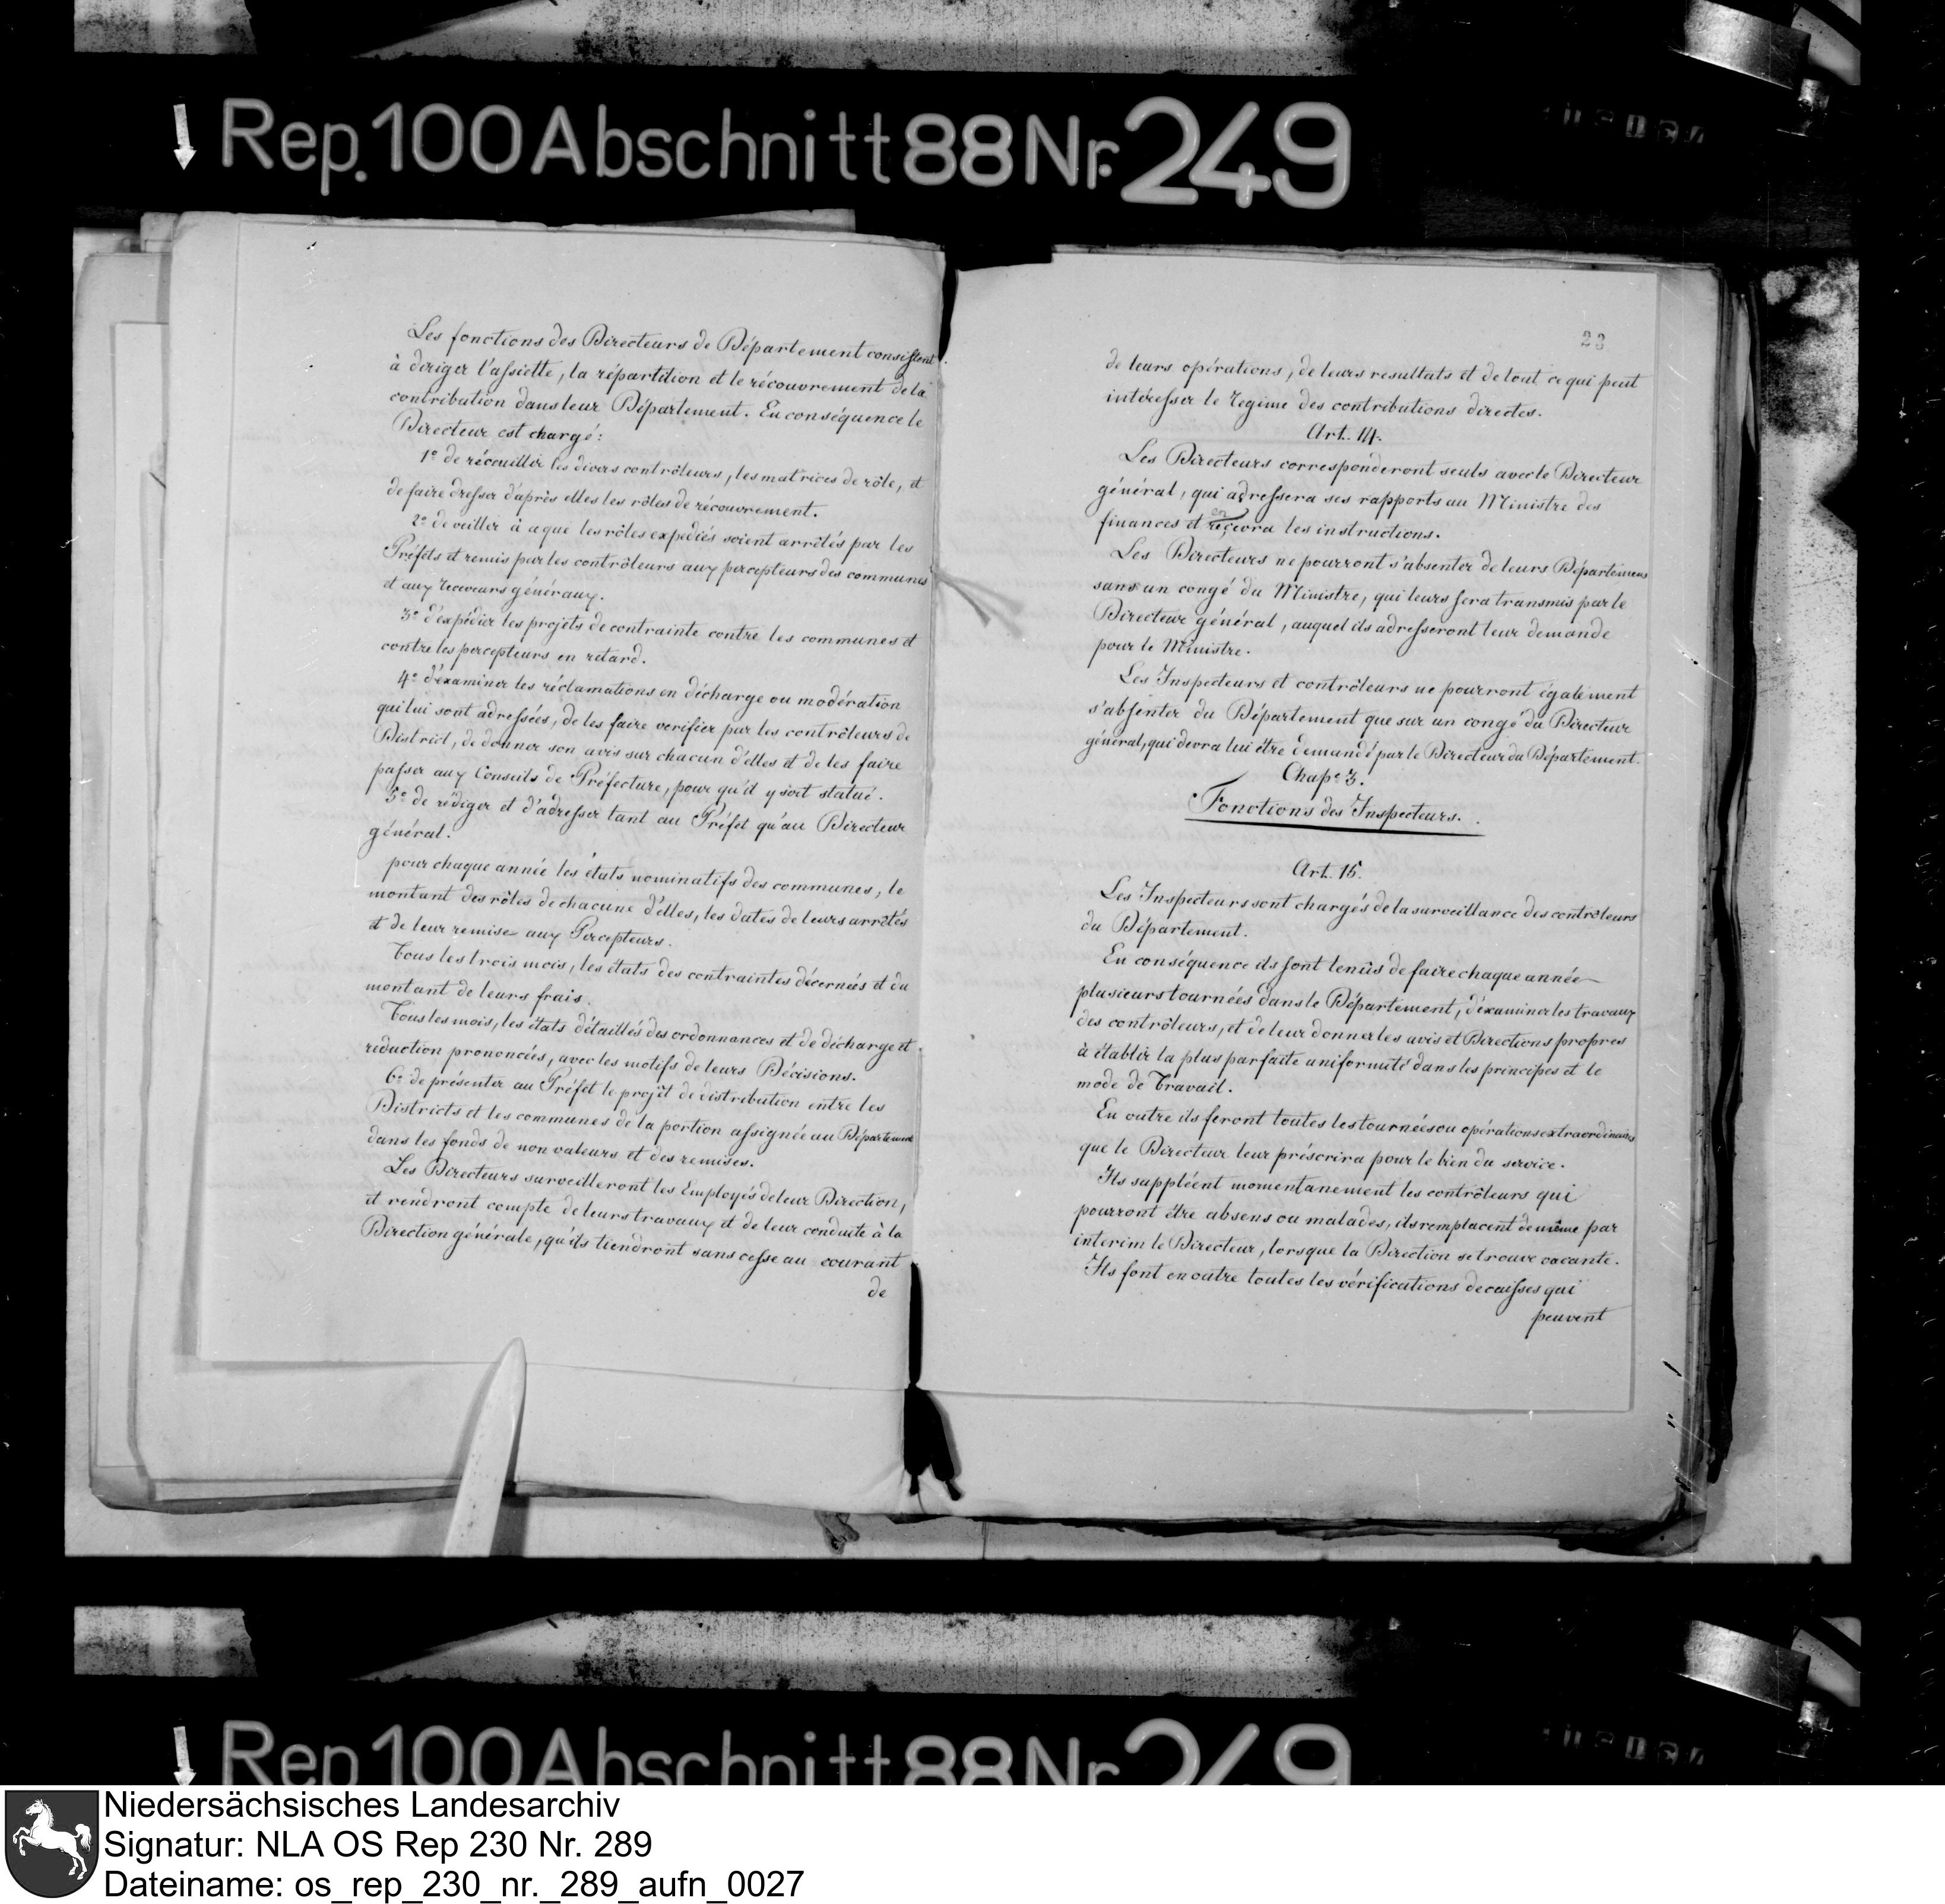 Rep. 100 Abschnitt 88 Nr. 249
Les fonctions des Directeurs de Département consistent
à deriger l'assiette, la répartition et le récouvrement de la
contribution dans leur Département. En conséquence le
Directeur est chargé:
1.º de récœuillir les divers contrôleurs, les matrices de rôle, et
de faire dresser d'après elles les rôles de récouvrement.
2.º de veiller à a que les rôles expediés soient arrêtés par les
Préfets et remis par les contrôleurs aux percepteurs des communes
et aux receveurs généraux.
3.º d'éxpédier les projets de contrainte contre les communes et
contre les percepteurs en retard.
4.º d'éxaminer les réclamations en décharge ou modération
qui lui sont adressées, de les faire verifier par les contrôleurs de
District, de donner son avis sur chacun d'elles et de les faire
passer aux Conseils de Préfecture, pour qu'il y soit statué.
5.º de rédiger et d'adresser tant au Préfet qu'au Directeur
général.
pour chaque année les états nominatifs des communes, le
montant des rôles de chacune d'elles, les dates de leurs arrêtés
et de leur remise aux Percepteurs.
Tous les trois mois, les états des contraintes décernées et du
montant de leurs frais.
Tous les mois, les états détaillés des ordonnances et de décharge et
réduction prononcées, avec les motifs de leurs Décisions.
6.º de présenter au Préfet le projêt de distribution entre les
Districts et les communes de la portion assignée au Département
dans les fonds de non valeurs et des remises.
Les Directeurs surveilleront les Employés de leur Direction,
et rendront compte de leurs travaux et de leur conduite à la
Direction générale, qu'ils tiendront sans cesse au courant
de
23
de leurs opérations, de leurs resultats et de tout ce qui peut
intéresser le regime des contributions directes.
Art. 14.
Les Directeurs correspónderont seuls avec le Directeur
général, qui adressera ses rapports au Ministre des
finances et en reçevra les instructions.
Les Directeurs ne pourront s'absenter de leurs Départemens
sans un congé du Ministre, qui leurs sera transmis par le
Directeur général, auquel ils adresseront leur demande
pour le Ministre.
Les Inspecteurs et contrôleurs ne pourront également
s'absenter du Département que sur un congé du Directeur
général, qui devra lui être demandé par le Directeur du Département.
Chap.e 3.
Fonctions des Inspecteurs.
Art. 15.
Les Inspecteurs sont chargés de la surveillance des contrôleurs
du Département.
En conséquence ils sont tenûs de faire chaque année
plusieurs tournées dans le Département, d'éxaminer les travaux
des contrôleurs, et de leur donner les avis et Directions propres
à établir la plus parfaite uniformité dans les principes et le
mode de Travail.
En outre ils feront toutes les tournées ou opérations extraordinaires
que le Directeur leur préscrira pour le bien du service.
Ils suppléent momentanement les contrôleurs qui
pourront être absens ou malades, ils remplacent de même par
interim le Directeur, lorsque la Direction se trouve vacante.
Ils font en outre toutes les vérifications de caisses qui
peuvent
Rep. 100 Abschnitt 88 Nr. 249
Niedersächsisches Landesarchiv
Signatur: NLA OS Rep 230 Nr. 289
Dateiname: os_rep_230_nr._289_aufn_0027